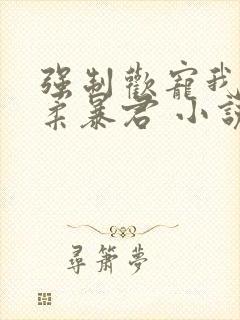 强制歡寵我
柔暴君 小說
尋簫夢